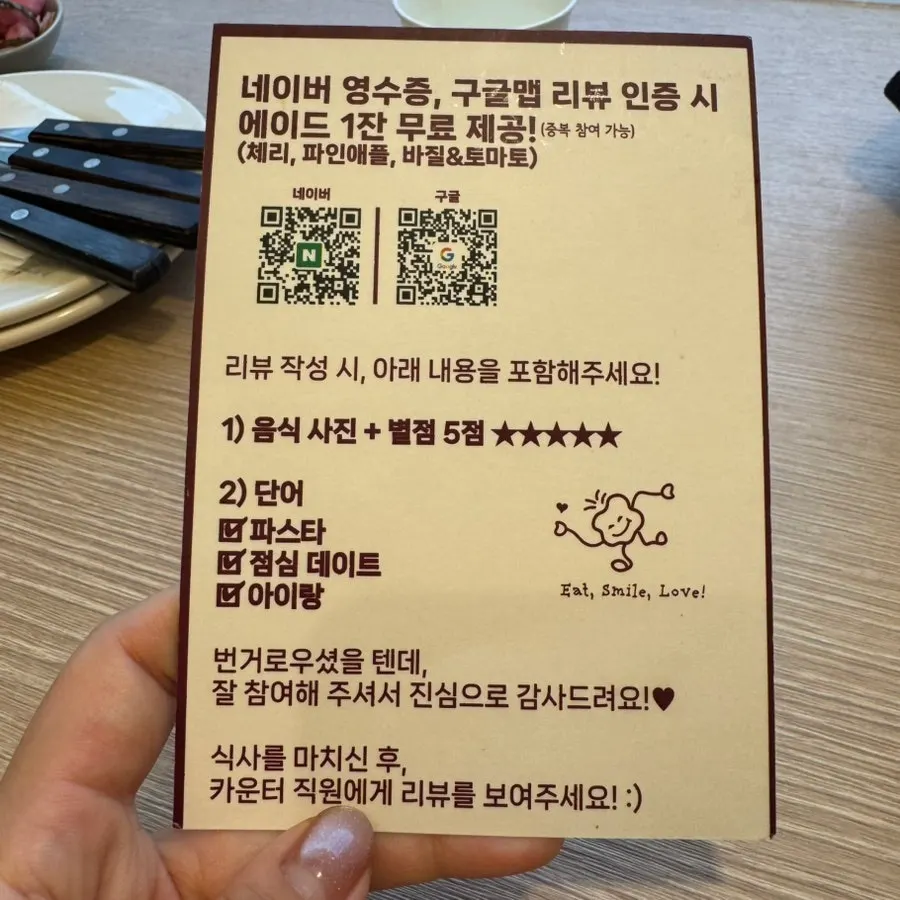 네이버 영수증, 구글맵 리뷰 인증 시
에이드 1잔 무료 제공! (중복 참여 가능)
(체리, 파인애플, 바질&토마토)
네이버 구글
N G
Google
리뷰 작성 시, 아래 내용을 포함해주세요!
1) 음식 사진 + 별점 5점 ★★★★★
2) 단어
☑ 파스타
☑ 점심 데이트
☑ 아이랑
Eat, Smile, Love!
번거로우셨을 텐데,
잘 참여해 주셔서 진심으로 감사드려요!♥
식사를 마치신 후,
카운터 직원에게 리뷰를 보여주세요! :)